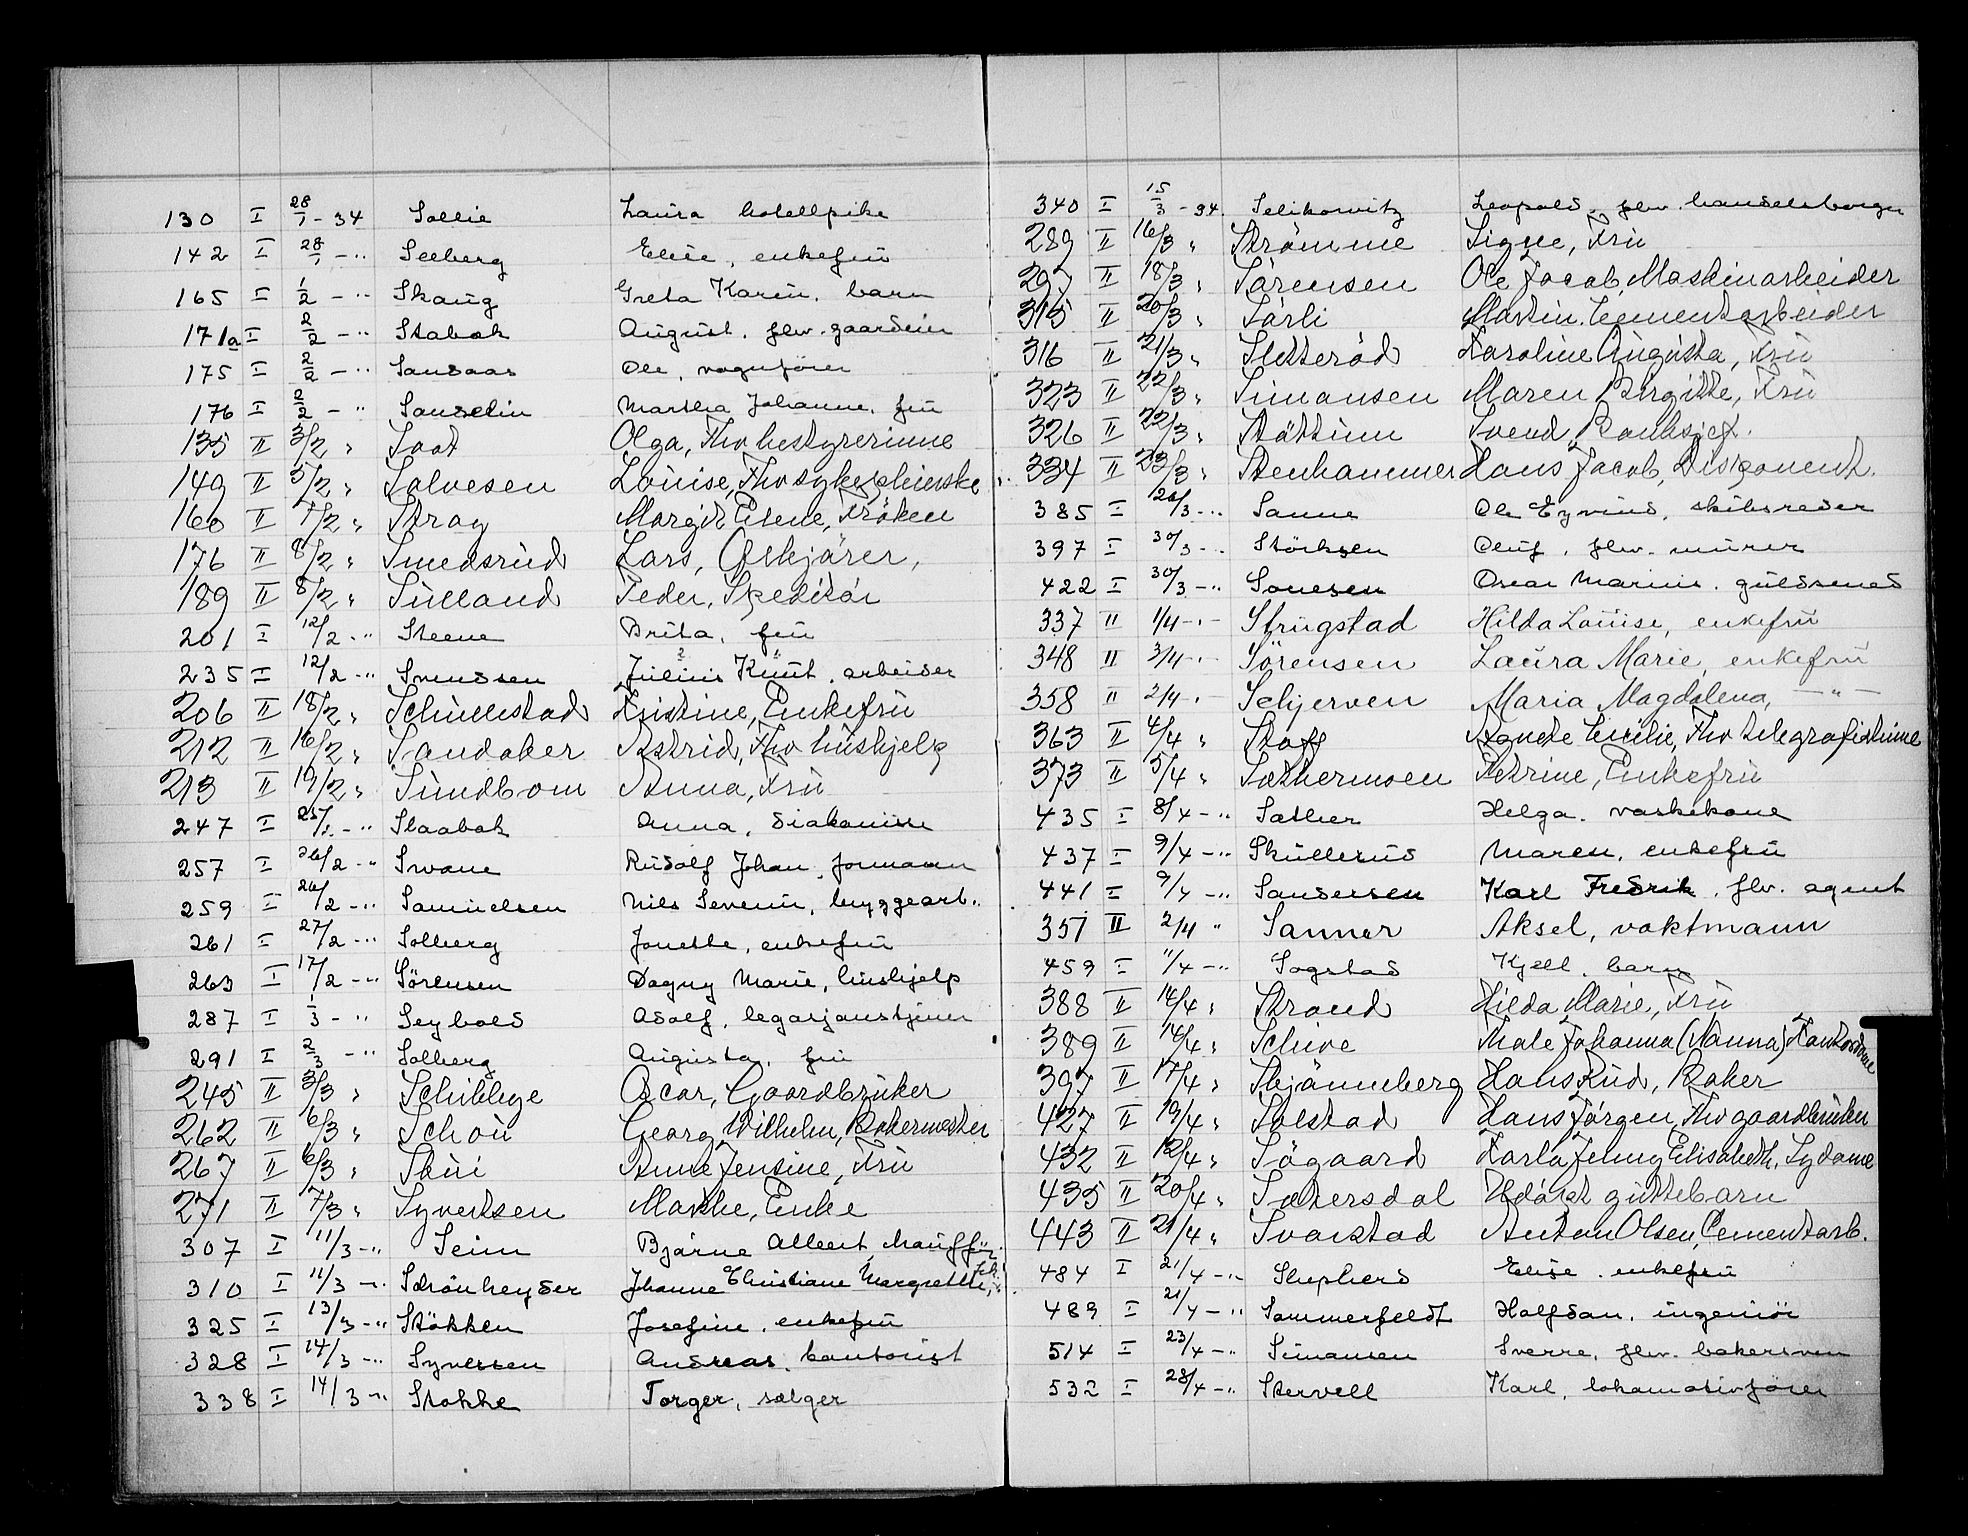 130 I 28/1 - 34 Sollie Laura hotellpike
142 I 28/1 - " Seeberg Elise, enkefru
165 I 1/2 - " Skaug Greta Karin, barn
171a I 2/2 - " Stabak August, flw. gaardeier
175 I 2/2 - " Sandaas Ole, vognfører
176 I 2/2 - " Sanselin Martha Johanne, fru
135 II 3/2 " Soot Olga, Fhv bestyrerinne
149 II 5/2 " Solvesen Louise, Fhv sykepleierske
160 II 7/2 " Stray Margit Elene, Frøken
176 II 8/2 " Smedsrud Lars, Oskjører,
189 II 8/2 " Sulland Peder, Speditør
201 I 12/2 - " Steene Brita, fru
235 I 12/2 - " Svendsen Julius Knut, arbeider
206 II 18/2 " Schullestad Kristine, Enkefru
212 II 16/2 " Sandaker Astrid, Fhv hushjelp
213 II 19/2 " Sundbom Anna, Fru
247 I 25/2 - " Staabak Anna, diakonisse
257 I 26/2 - " Svane Rudolf Johan, formann
259 I 26/2 - " Samuelsen Nils Severin, byggearb.
261 I 27/2 - " Solberg Jonette, enkefru
263 I 17/2 - " Sørensen Dagny Marie, hushjelp
287 I 1/3 - " Seybold Adolf, legasjonstjener
291 I 2/3 - " Solberg Augusta, fru
245 II 3/3 " Schibbye Oscar, Gaardbruker
262 II 6/3 " Schou Georg Wilhelm, Bakermester
267 II 6/3 " Skui Anne Jensine, Fru
271 II 7/3 " Syvertsen Marthe, Enke
307 I 11/3 - " Seim Bjarne Albert, chauffør.
310 I 11/3 - " Schrönheyder Johanne Christiane Margrethe,
325 I 13/3 - " Støkken Josefine, enkefru
328 I 14/3 - " Syversen Andreas, kontorist
338 I 14/3 - " Stokke Torger, sælger
340 I 15/3 - 34. Selikowitz Leopold, flw. handelsborger
289 II 16/3 " Strømme Signe, Fru
297 II 18/3 " Sørensen Ole Jacob, Maskinarbeider
315 II 20/3 " Sørli Martin, Cementarbeider
316 II 21/3 " Sletterød Karoline Augusta, Fru
323 II 22/3 " Simonsen Maren Birgitte, Fru
326 II 22/3 " Støttum Svend, Banksjef.
334 II 23/3 " Stenhammer Hans Jacob, Disponent.
385 I 24/3 - " Sanne Ole Eyvind, skibsreder
397 I 30/3 - " Störksen Oluf, flw. murer
422 I 30/3 - " Sonesen Oscar Marius, guldsmed
337 II 1/4 - " - Strugstad Hilda Louise, enkefru
348 II 3/4 - " - Sörensen Laura Marie, enkefru
358 II 2/4 - " - Schjerven Maria Magdalena, — " —
363 II 4/4 " Staff Agnete Cecilie, Fhv telegrafistinne
373 II 5/4 " Sæthermoen Petrine, Enkefru
435 I 8/4 - " Sæther Helga, vaskekone
437 I 9/4 - " Skullerud Maren, enkefru
441 I 9/4 - " Sandersen Karl Fredrik, flv. agent
357 II 2/4 " Sanner Aksel, vaktmann
459 I 11/4 - " Sogstad Kjell, barn
388 II 14/4 " Strand Hilda Marie, Fru
389 II 14/4 " Schive Thale Johanna (Nanna) Kontordame
397 II 17/4 " Skjønneberg Hans Rud, Baker
427 II 19/4 " Solstad Hans Jørgen, Fhv gaardbruker
432 II 19/4 " Søgaard Karla Jenny Elisabeth, Sydame
435 II 20/4 " Sætersdal Udøpt guttebarn
443 II 21/4 " Svarstad Anton Olsen, Cementarb.
484 I 21/4 - " Shepherd Elise, enkefru
489 I 21/4 - " Sommerfeldt Halfdan, ingeniör
514 I 23/4 - " Simonsen Sverre, flw. bakersven
532 I 28/4 - " Stervell Karl, lokomotivfører